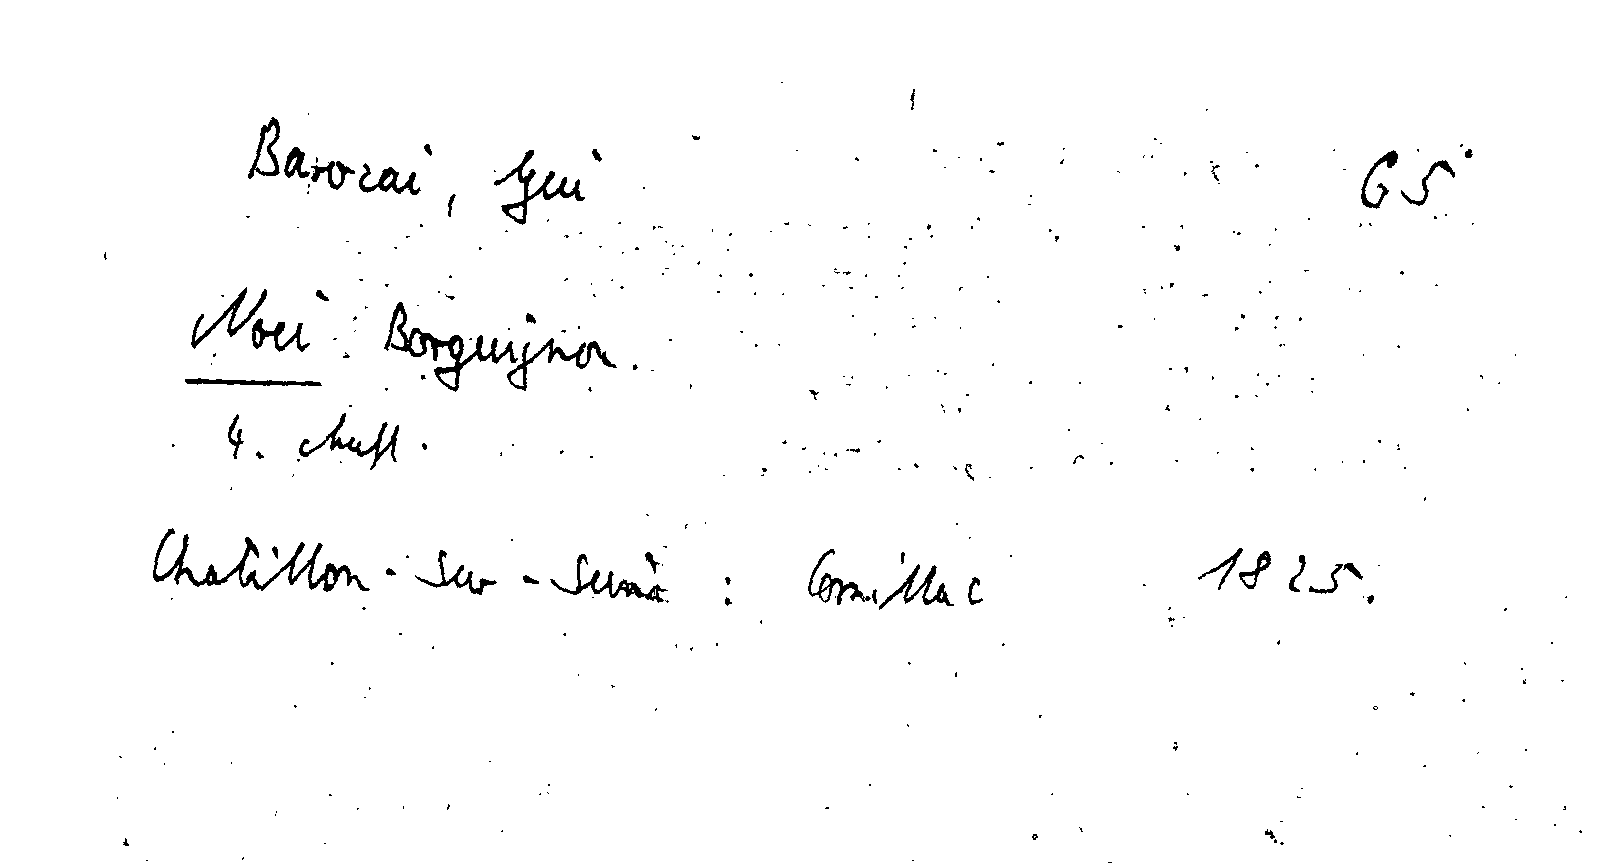 Barozai, Gui 65
Noei Borguignon.
4. Aufl.
Chatillon-sur-Seine : Cornillac 1825.